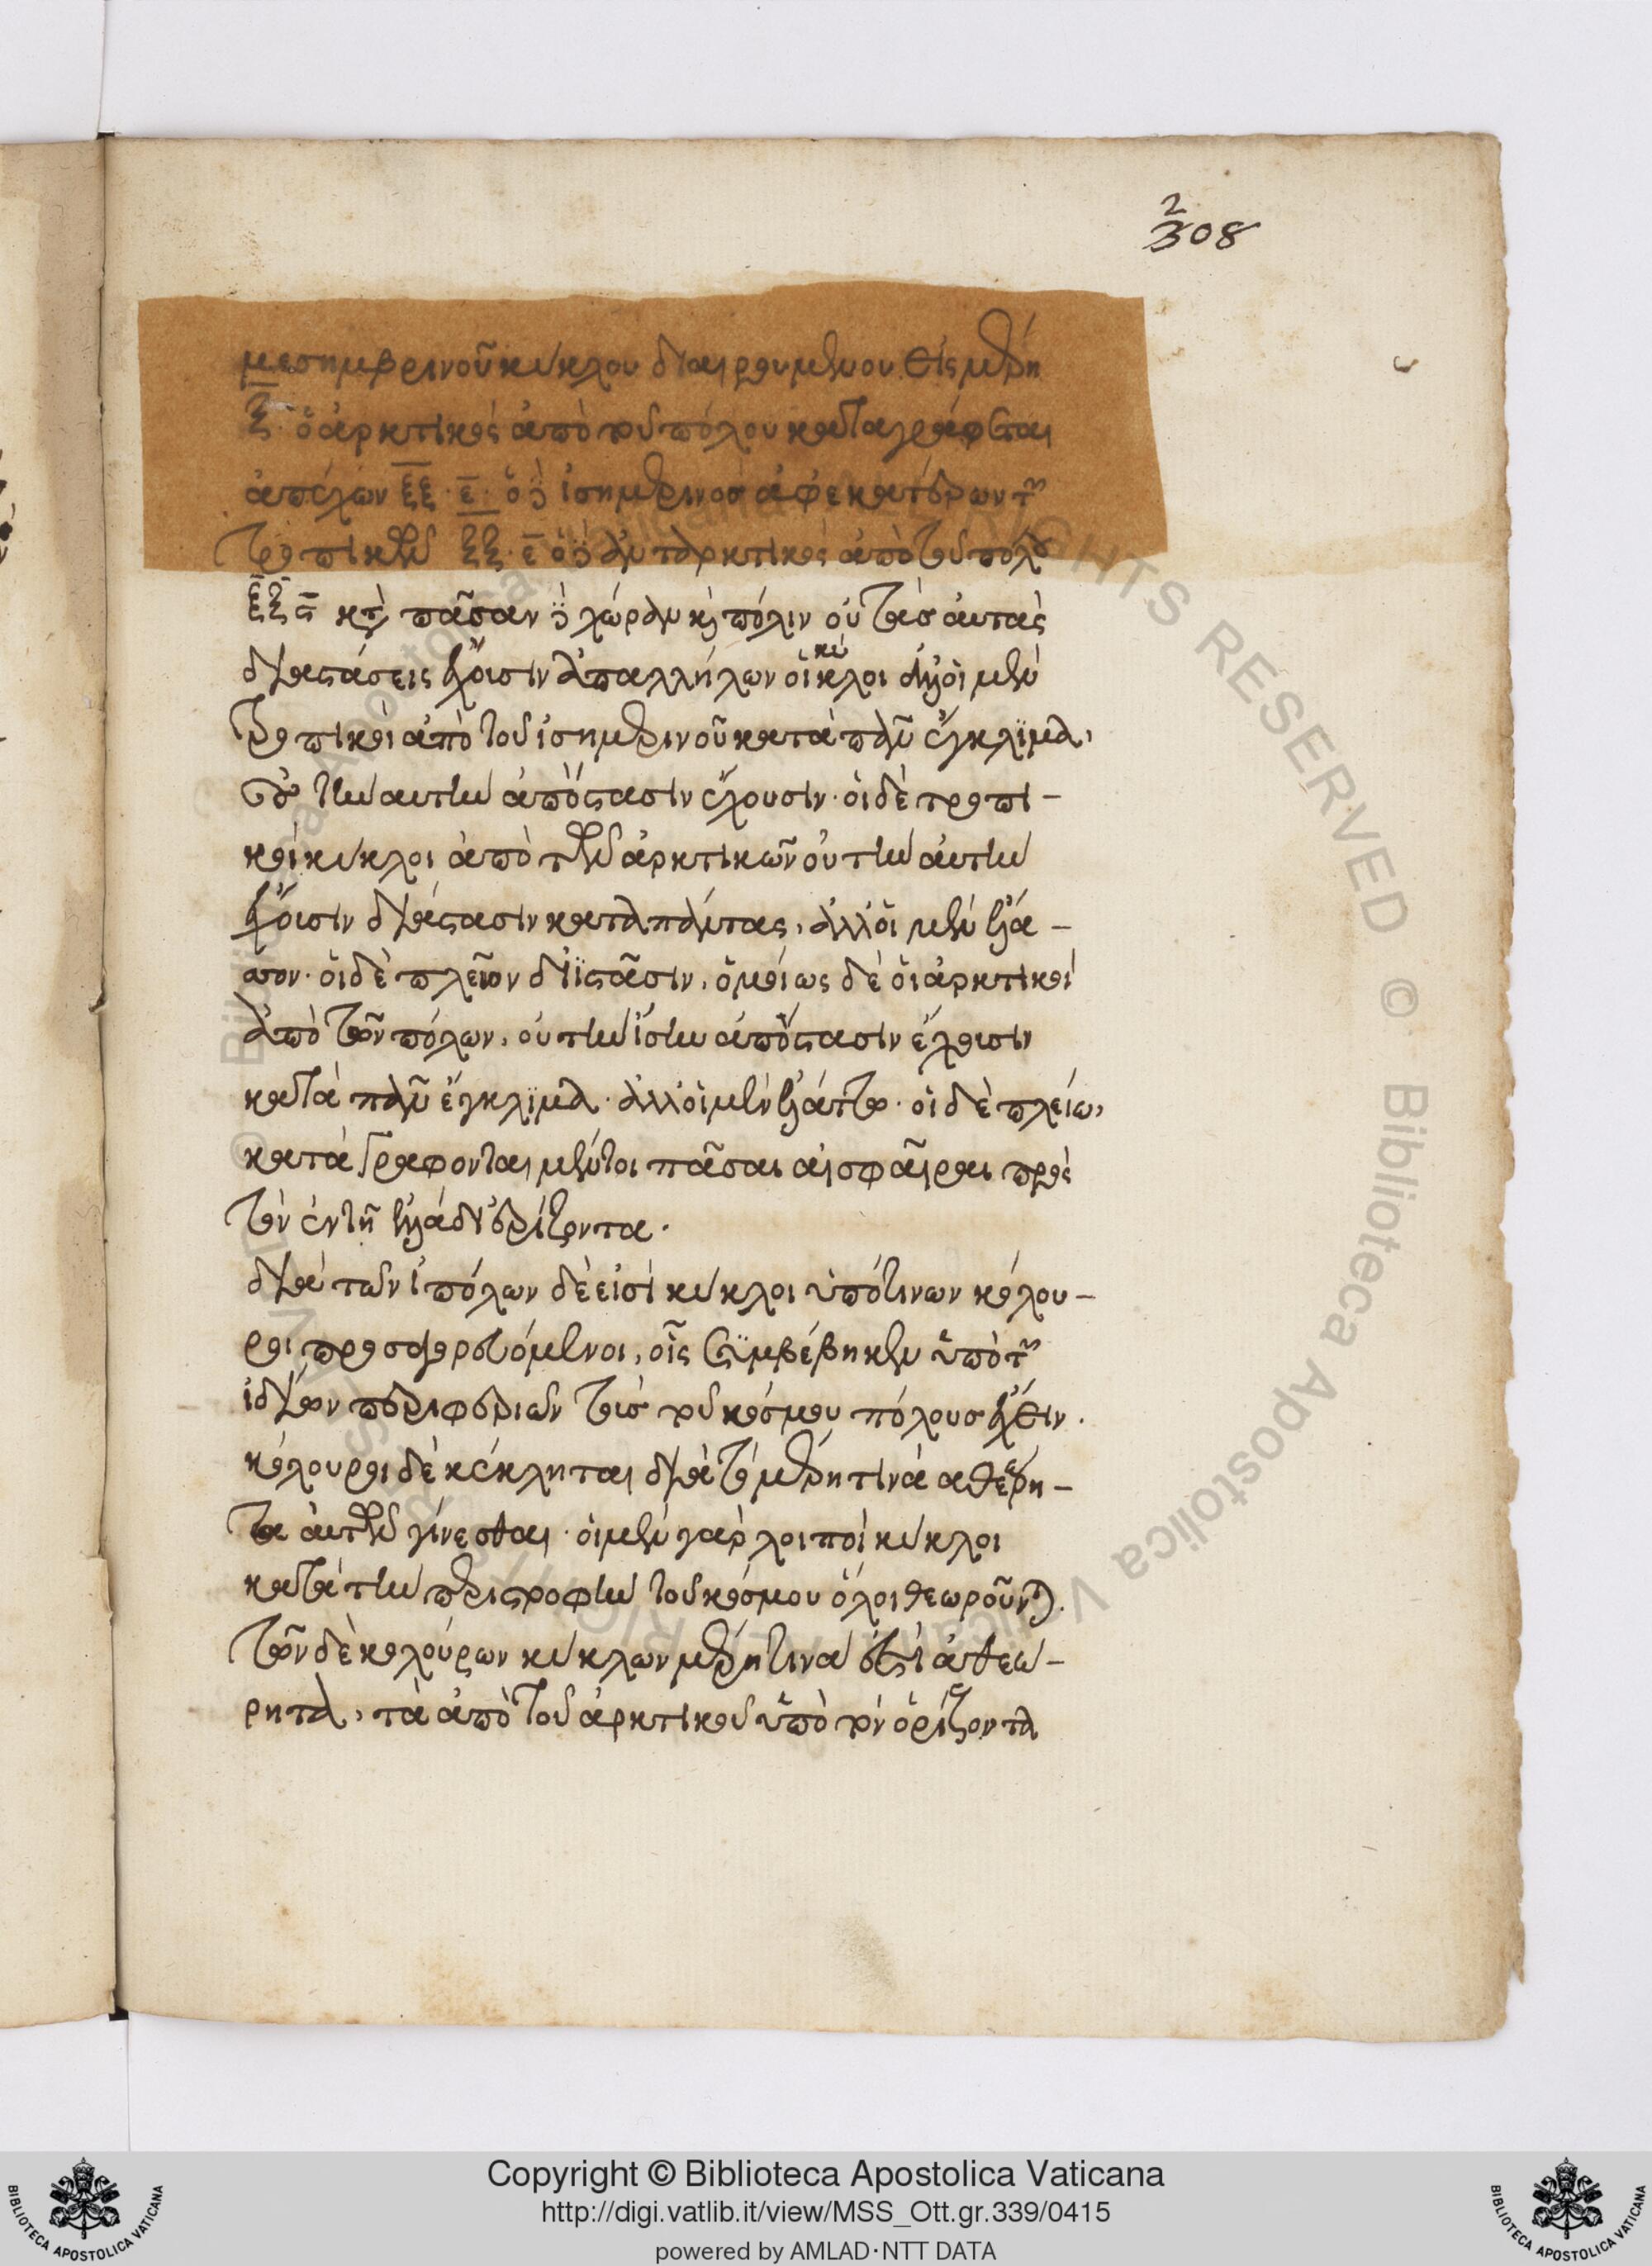 2
308
μεσημβρινοῦ κύκλου διαιρουμένου εἰς μέρη
ξ· ὁ ἀρκτικὸς ἀπὸ τοῦ πόλου καταγράφεται
ἀπέχων ξξ · ε · ὁ δὲ ἰσημερινὸσ ἀφ' ἑκατέρων τῶν
τροπικῶν ξξ · ε ὁ δὲ ἀνταρκτικὸς ἀπὸ τοῦ πόλου
ξξ ϛ κατὰ πᾶσαν δὲ χώραν καὶ πόλιν οὐ τὰσ αὐτὰς
διαστάσεις ἔχουσιν ἀπ' ἀλλήλων οἱ κύκλοι ἀλλ' οἱ μὲν
τροπικοὶ ἀπὸ τοῦ ἰσημερινοῦ κατὰ πᾶν ἔγκλιμα,
τὴν αὐτὴν ἀπόστασιν ἔχουσιν· οἱ δὲ τροπι-
κοὶ κύκλοι ἀπὸ τῶν ἀρκτικῶν οὐ τὴν αὐτὴν
ἔχουσιν διάστασιν κατὰ πάντας, ἀλλ' οἱ μὲν ἔλα-
τον· οἱ δὲ πλεῖον διϊστᾶσιν, ὁμοίως δὲ οἱ ἀρκτικοὶ
ἀπὸ τῶν πόλων, οὐ τὴν ἴσην ἀπόστασιν ἔχουσιν
κατὰ πᾶν ἔγκλιμα· ἀλλ' οἱ μὲν ἐλάττω· οἱ δὲ πλείω,
καταγράφονται μέντοι πᾶσαι αἱ σφαῖραι πρὸς
τὸν ἐν τῇ ἑλλάδι ὁρίζοντα.
διὰ τῶν πόλων δὲ εἰσὶ κύκλοι ὑπό τινων κόλου-
ροι προσαγορευόμενοι, οἷς συμβέβηκεν ὑπὸ τῶν
ἰδίων περιφεριῶν τοὺσ τοῦ κόσμου πόλουσ ἔχειν.
κόλουροι δὲ κέκληται διὰ τὸ μέρη τινὰ ἀθεώρη-
τα αὐτῶν γίνεσθαι· οἱ μὲν γὰρ λοιποὶ κύκλοι
κατὰ τὴν περιστροφὴν τοῦ κόσμου ὅλοι θεωροῦνται.
τῶν δὲ κολούρων κύκλων μέρη τινὰ ἐστὶ ἀθεώ-
ρητα, τὰ ἀπὸ τοῦ ἀρκτικοῦ ὑπὸ τὸν ὁρίζοντα
© Biblioteca Apostolica Vaticana
ALL RIGHTS RESERVED
Copyright © Biblioteca Apostolica Vaticana
http://digi.vatlib.it/view/MSS_Ott.gr.339/0415
powered by AMLAD·NTT DATA
BIBLIOTECA APOSTOLICA VATICANA
BIBLIOTECA APOSTOLICA VATICANA